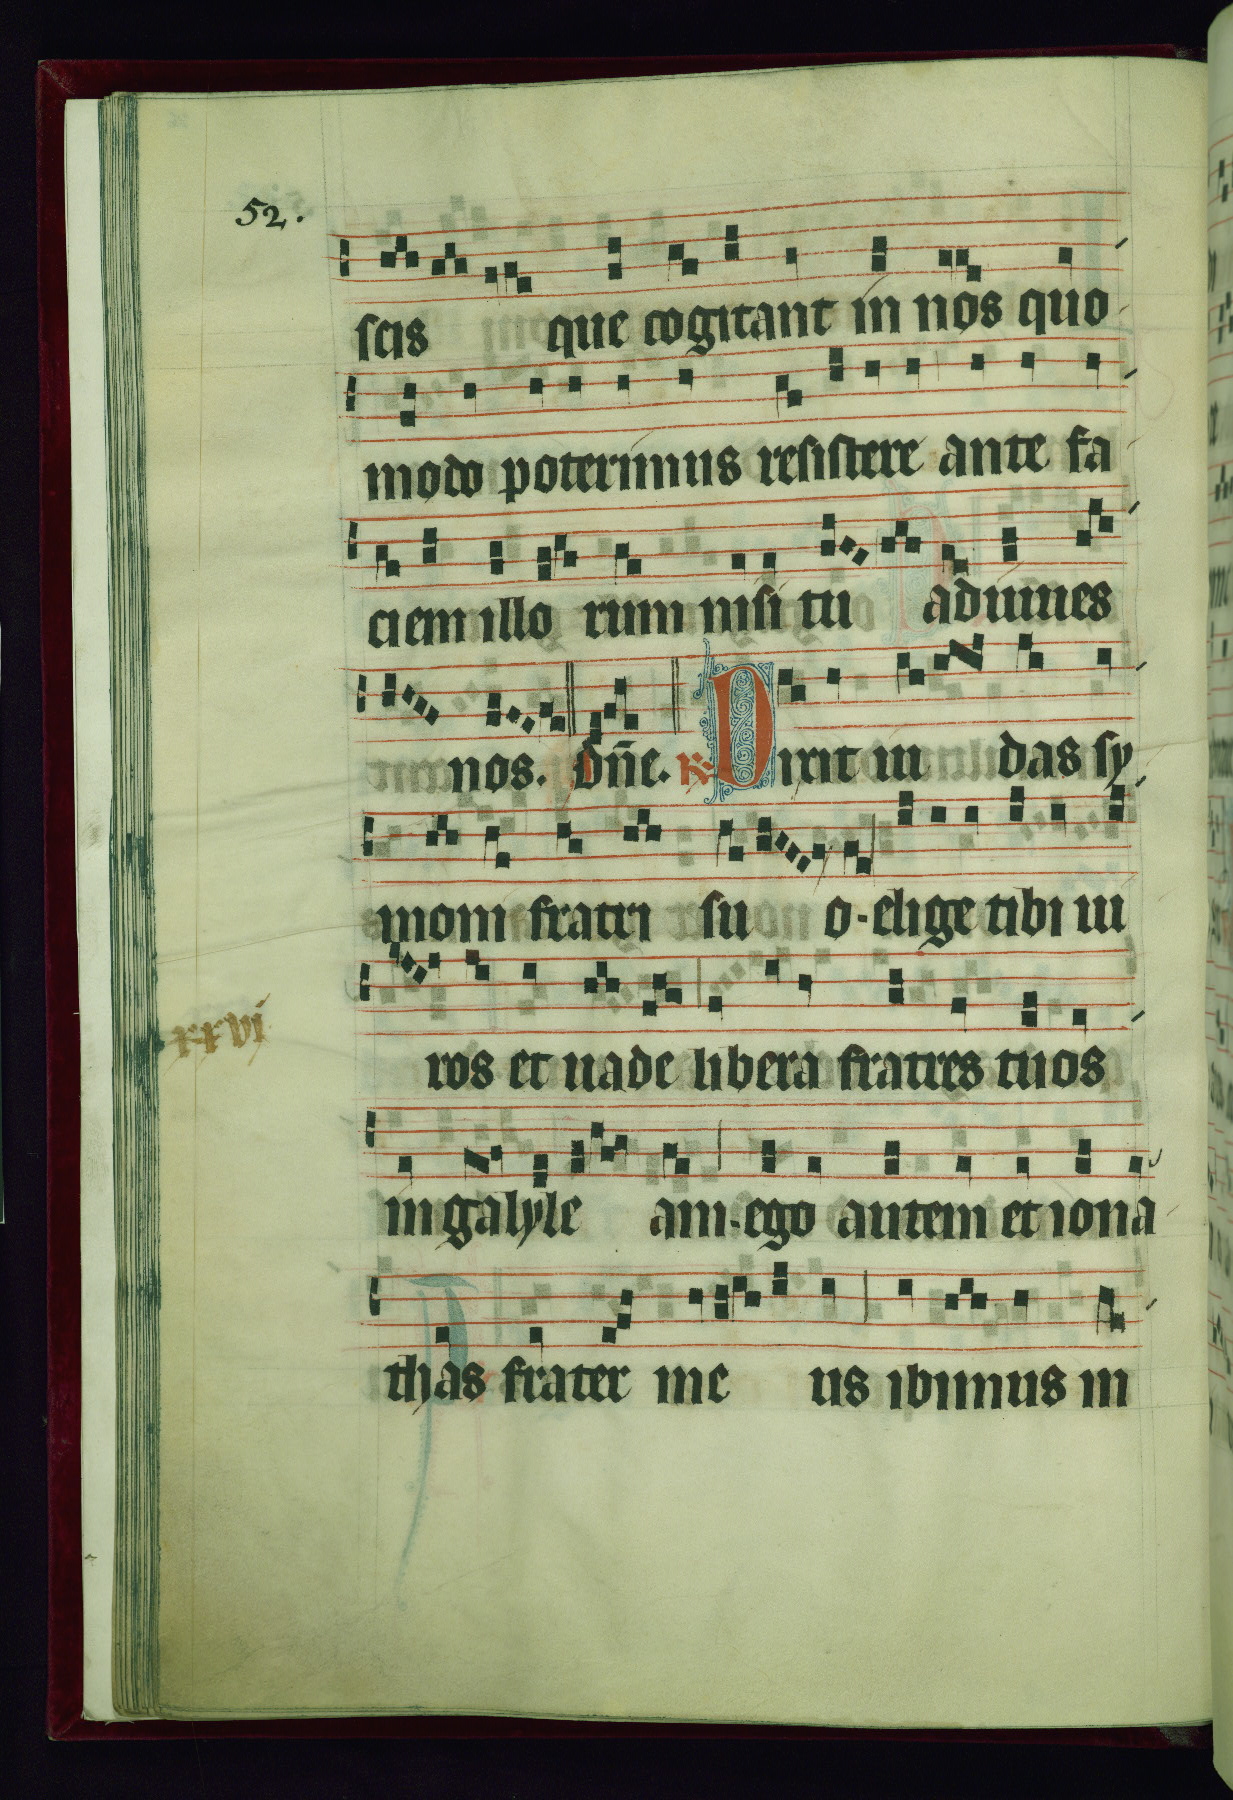 52.
scis que cogitant in nos quo
modo poterimus resistere ante fa
ciem illo rum nisi tu adiuues
nos. dn̄e. R̷ Dixit iu das sy
moni fratri su o. elige tibi ui
ros et uade libera fratres tuos
xxvi
in galyle am. ego autem et iona
thas frater me us ibimus in